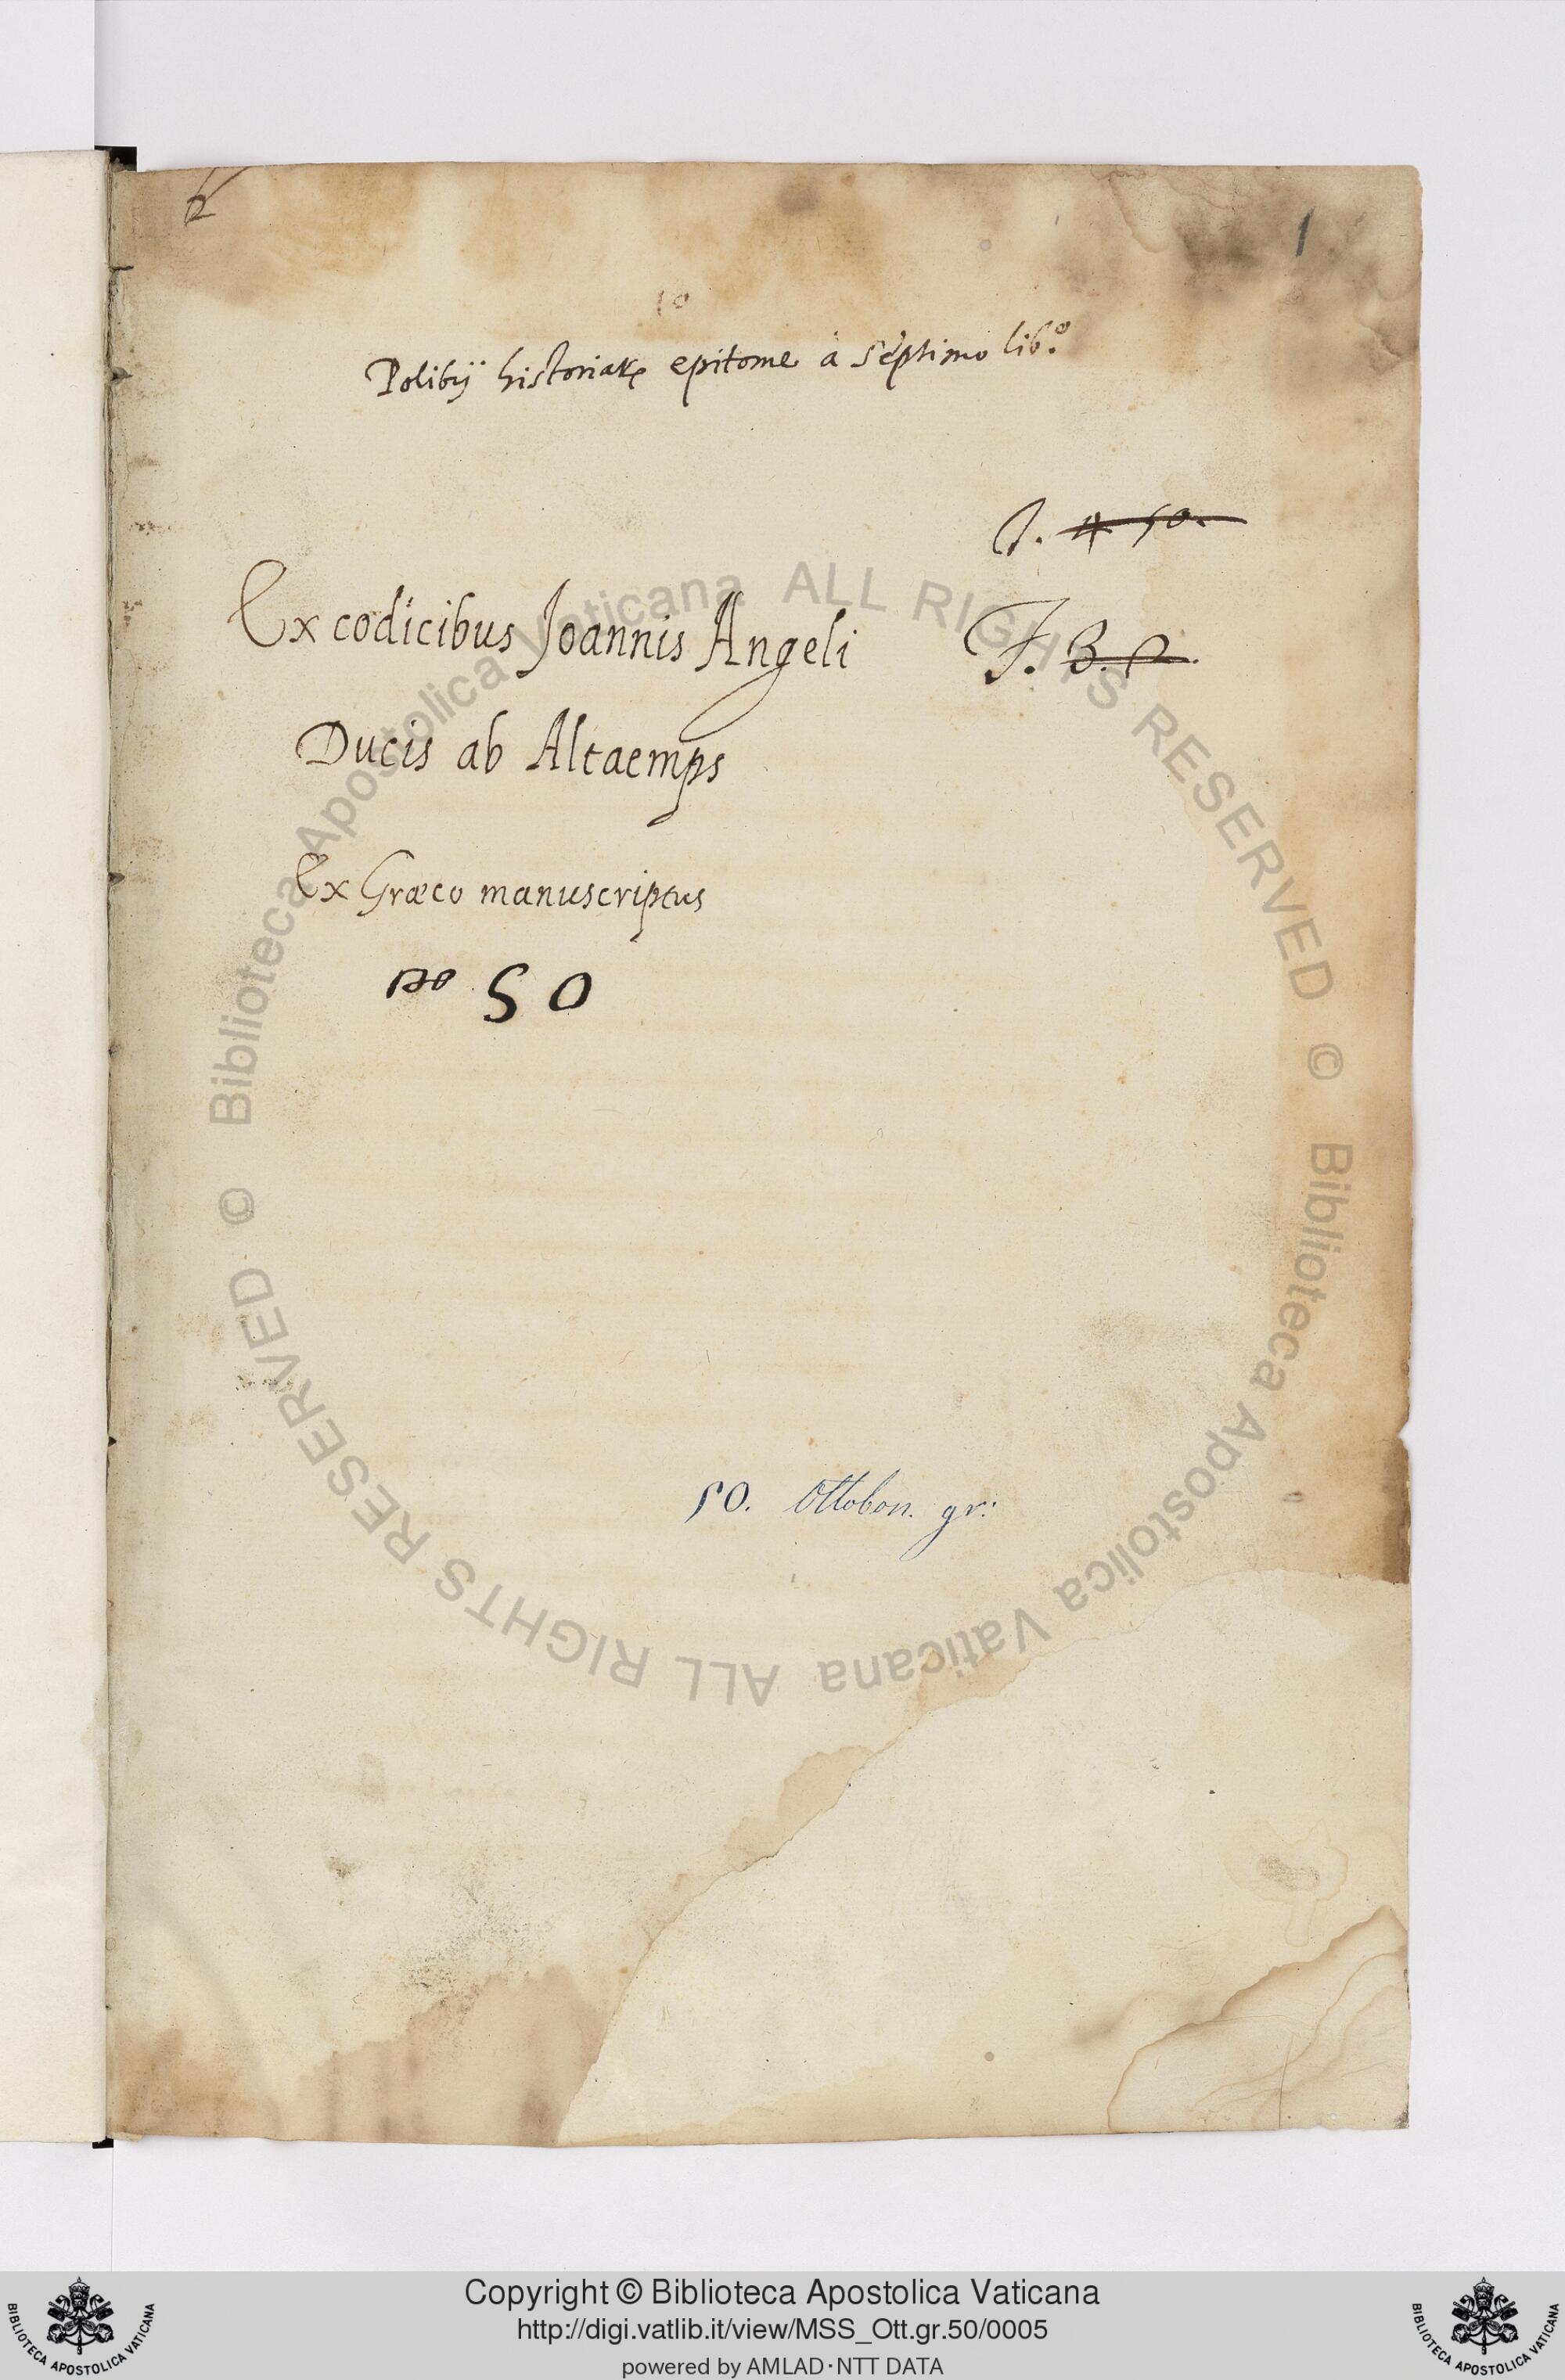 1
10
Polibij historiaꝝ epitome à septimo lib.º
Ex codicibus Joannis Angeli
Ducis ab Altaemps
Ex Græco manuscriptus
no 50
J. 4 50.
F. B. 2.
50. Ottobon. gr:
© Biblioteca Apostolica Vaticana ALL RIGHTS RESERVED © Biblioteca Apostolica Vaticana ALL RIGHTS RESERVED
Copyright © Biblioteca Apostolica Vaticana
http://digi.vatlib.it/view/MSS_Ott.gr.50/0005
powered by AMLAD·NTT DATA
BIBLIOTECA APOSTOLICA VATICANA
BIBLIOTECA APOSTOLICA VATICANA